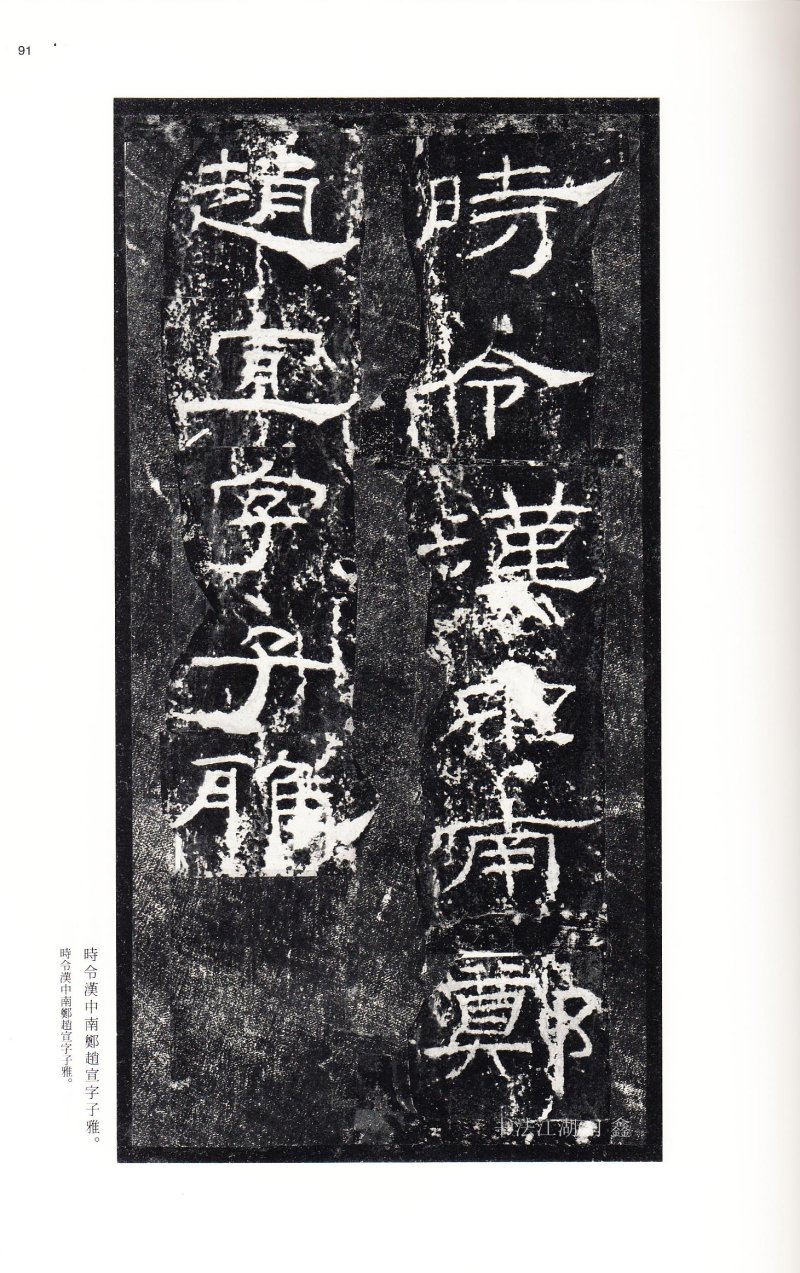 91
時令漢中南鄭
趙宣字子雅
時令漢中南鄭趙宣字子雅。
時令漢中南鄭趙宣字子雅。
法江湖 丁鑫